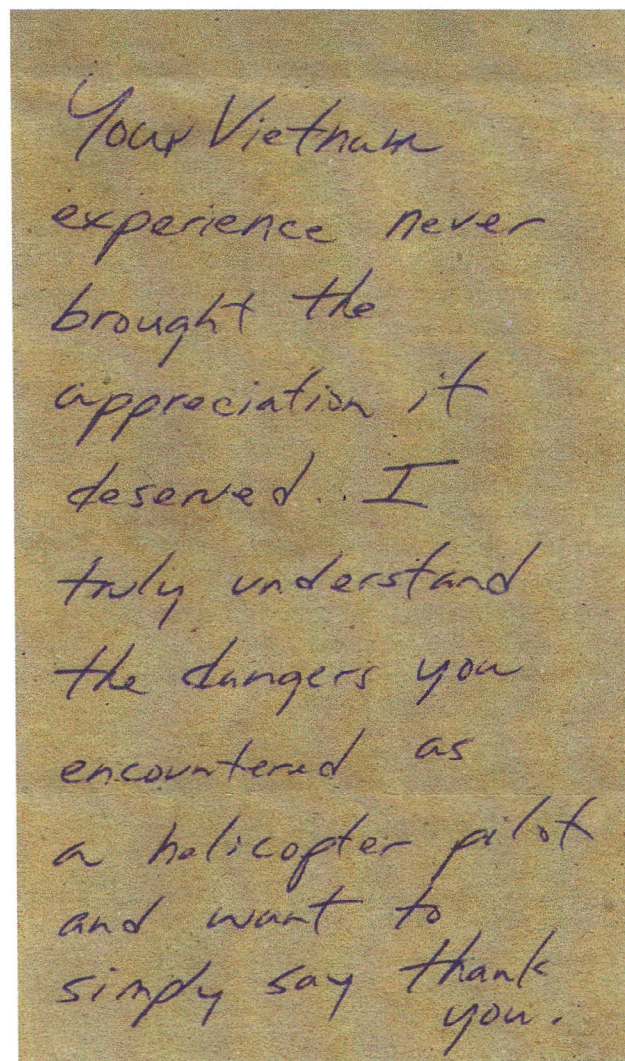 Your Vietnam
experience never
brought the
appreciation it
deserved.. I
truly understand
the dangers you
encountered as
a helicopter pilot
and want to
simply say thank
you.